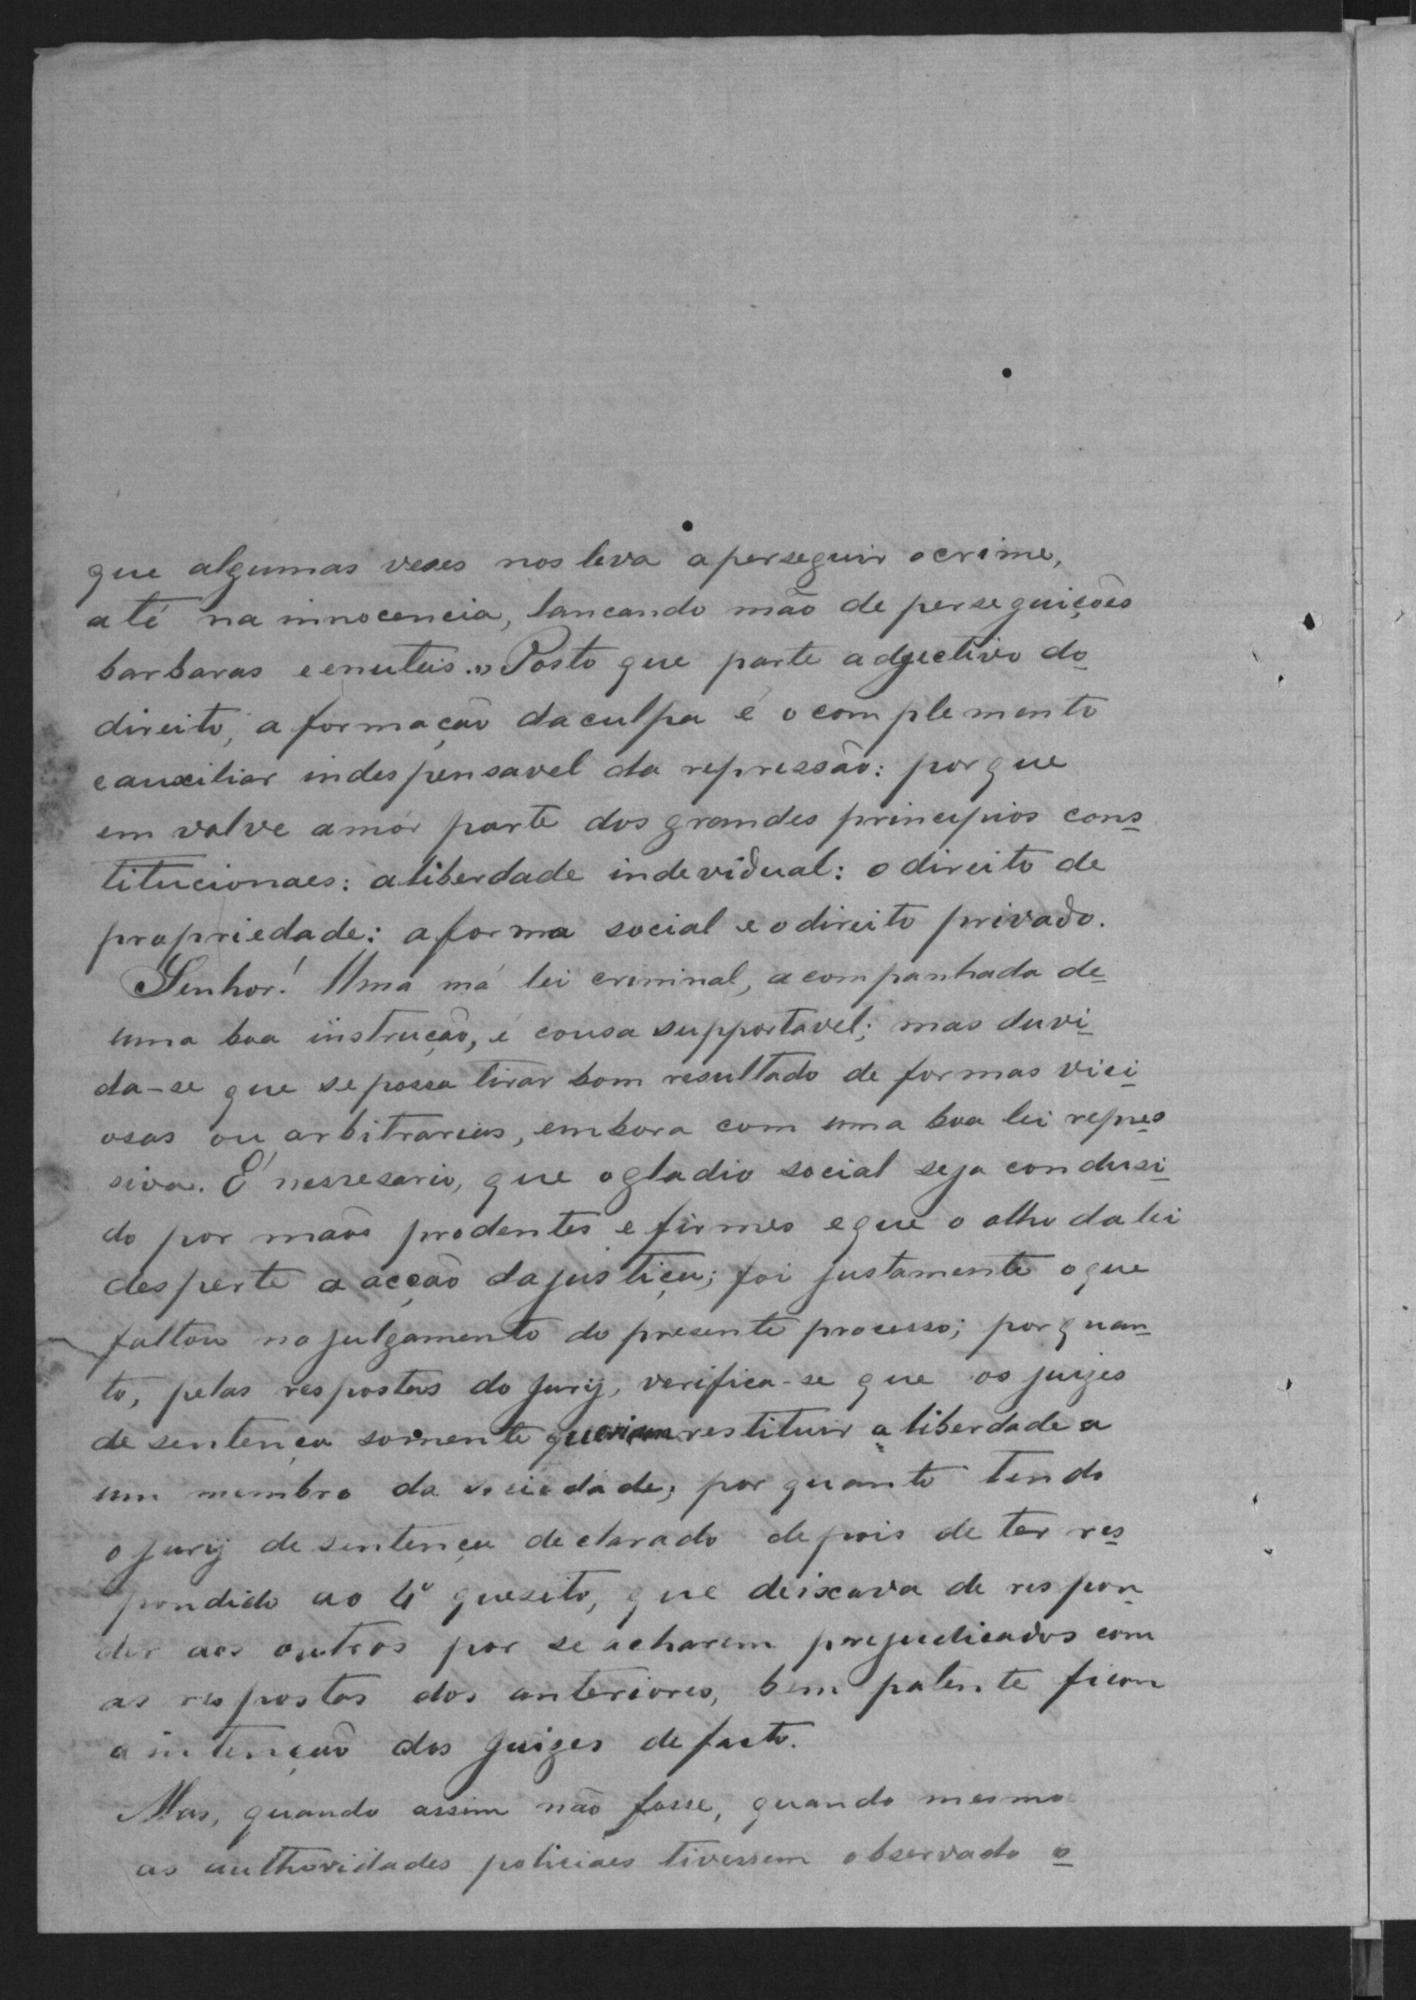 que algumas veses nos leva a perseguir o crime,
até na innocencia, lancando mão de perseguições
barbaras e enuteis." Posto que parte adjectivo do
direito, a formação da culpa é o complemento
e auxiliar indespensavel da repressão: porque
em volve a mór parte dos grandes principios cons
titucionaes: a liberdade indevidual: o direito de
propriedade: a forma social e o direito privado.
Senhor! Uma má lei criminal, acompanhada de
uma boa instrucção, é cousa supportavel; mas duvi
da-se que se possa tirar bom resultado de formas vici
osas ou arbitrarias, embora com uma boa lei repres
siva. É nessesario, que o gladio social seja condusi
do por mãos prodentes e firmes e que o olho da lei
desperte a acção da justiça; foi justamente o que
faltou no julgamento do presente processo; porquan
to, pelas respostas do jury, verifica-se que os juizes
de sentença somente queriam restituir a liberdade a
um membro da sociedade; por quanto tendo
o jury de sentença declarado depois de ter res
pondido ao 4º quesito, que deixava de respon
der aos outros por se acharem prejudicados com
as respostas dos anteriores, bem patente ficou
a intenção dos juizes de facto.
Mas, quando assim não fosse, quando mesmo
as authoridades policiaes tivessem observado o